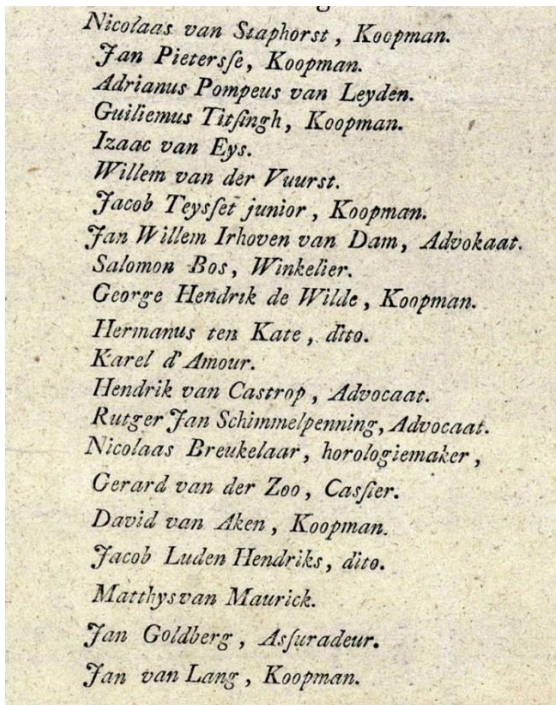 Nicolaas van Staphorst, Koopman.
Jan Pieterſſe, Koopman.
Adrianus Pompeus van Leyden.
Guiliemus Titſingh, Koopman.
Izaac van Eys.
Willem van der Vuurst.
Jacob Teysſet junior, Koopman.
Jan Willem Irhoven van Dam, Advokaat.
Salomon Bos, Winkelier.
George Hendrik de Wilde, Koopman.
Hermanus ten Kate, dito.
Karel d'Amour.
Hendrik van Castrop, Advocaat.
Rutger Jan Schimmelpenning, Advocaat.
Nicolaas Breukelaar, horologiemaker,
Gerard van der Zoo, Casſier.
David van Aken, Koopman.
Jacob Luden Hendriks, dito.
Matthysvan Maurick.
Jan Goldberg, Asſuradeur.
Jan van Lang, Koopman.